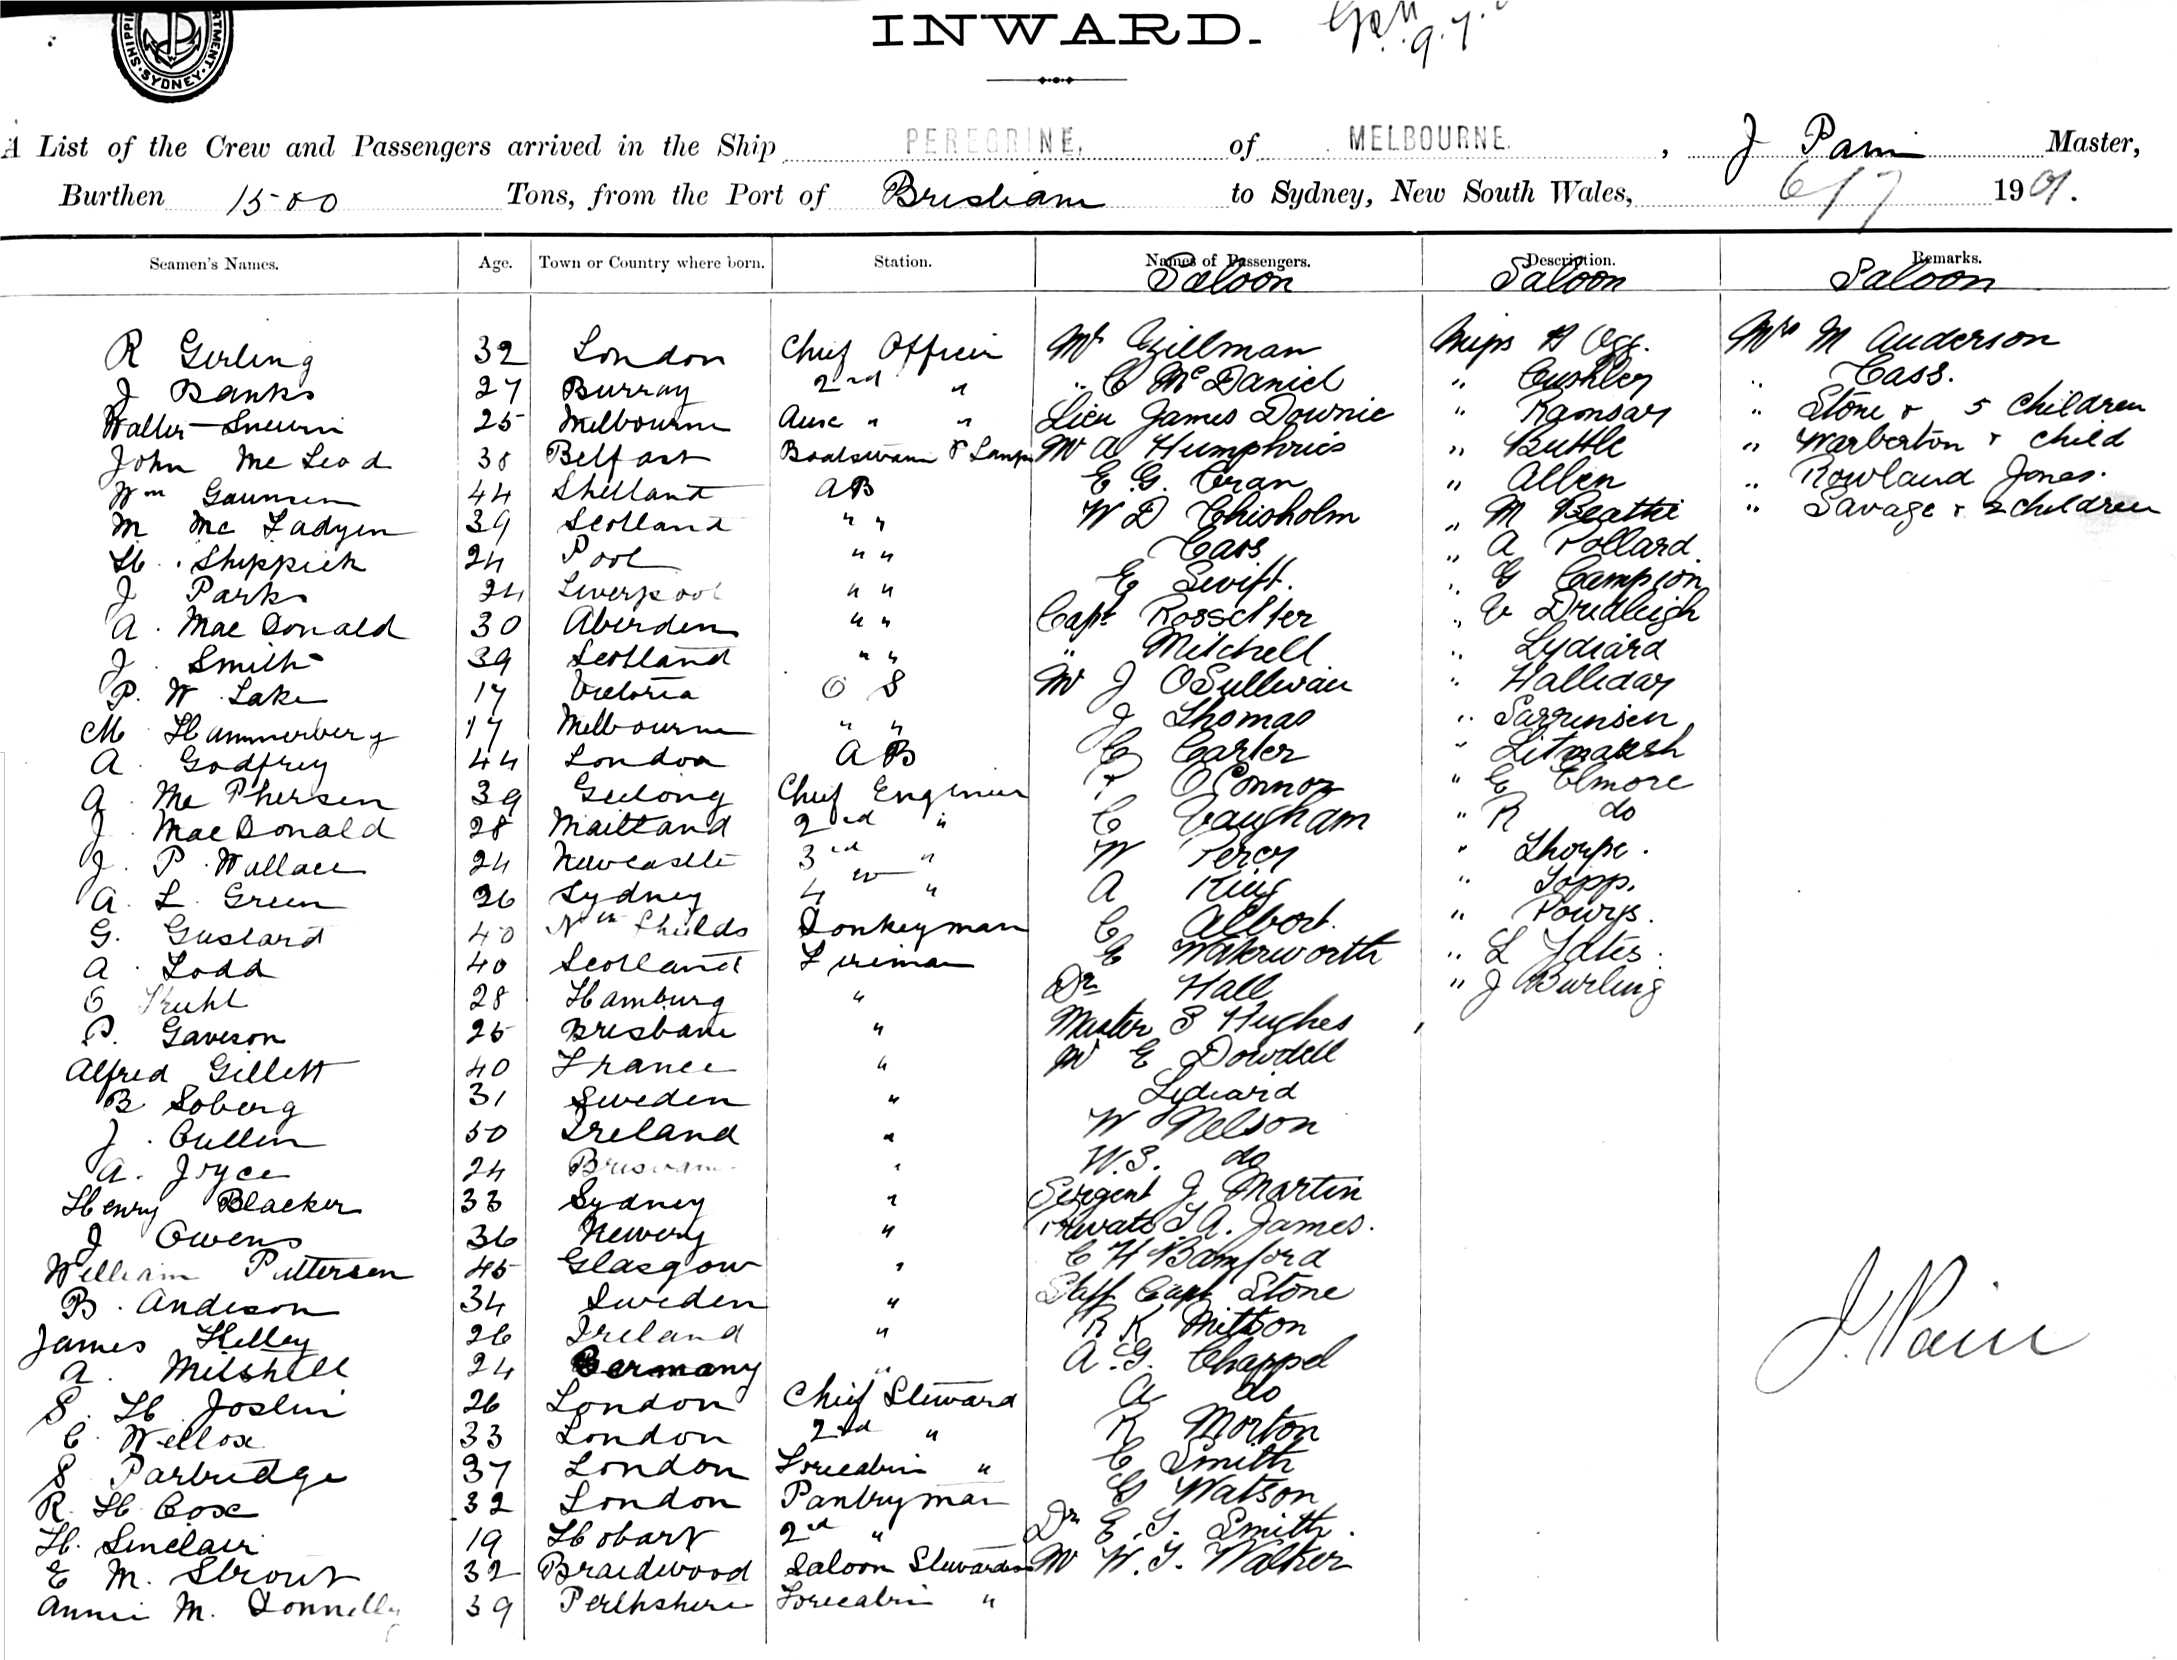 INWARD.
SYDNEY
A List of the Crew and Passengers arrived in the Ship PEREGRINE, of MELBOURNE. , J Pain Master,
Burthen 1500 Tons, from the Port of Brisbane to Sydney, New South Wales, 6/7 1901.
Seamen's Names. Age. Town or Country where born. Station. Names of Passengers. Description. Remarks.
Saloon Saloon Saloon
R Gerling 32 London Chief Officer Mr Gillman Miss A Ogg. Mrs M Anderson
J Banks 27 Burray 2nd " " C McDaniel " Cushley " Cass.
Walter 25 Melbourne " " Lieu James Downie " Ramsay " Stone & 5 Children
John McLeod 38 Belfast Boatswain & Lamps Mr A Humphries " Buttle " Warberton & Child
Wm 44 Shetland AB E. G. Cran " Allen " Rowland Jones.
M McFadyen 39 Scotland " " W D Chisholm " M Beattie " Savage & 2 children
H. Sheppick 24 Pool " " Cass " A Pollard
J Parks 24 Liverpool " " E Swift. " G Campion
A. MacDonald 30 Aberdeen " " Capt Rossetter " V Dredleigh
J. Smith 39 Scotland " " " Mitchell " Lydiard
P. W. Lake 17 Victoria O S Mr J OSullivan " Halliday
M Hammerberg 17 Melbourne " " J Thomas " Sarrensen
A. Godfrey 44 London AB C Carter " Litmarsh
A. McPhersen 39 Geelong Chief Engineer P OConnor " E Elmore
J. MacDonald 28 Maitland 2nd " C Vaugham " R do
J. P. Wallace 24 Newcastle 3rd " W Percy " Thorpe.
A. L. Green 26 Sydney 4 " A King " Topp.
G. Gustard 40 Nth Shields Donkeyman C Albert. " Powys.
A. Todd 40 Scotland Fireman E Waterworth " L Yates.
O Kuhl 28 Hamburg " Dr Hall " J Burling
P. Gaveson 25 Brisbane " Master S Hughes
Alfred Gillett 40 France " Mr E Dowdell
B Soberg 31 Sweden " Lydiard
J. Cullen 50 Ireland " W Nelson
A. Joyce 24 Brisbane " W.S. do
Henry Blacker 33 Sydney " Sergent J Martin
J Owens 36 Newery " Private T A. James.
William Pattersen 45 Glasgow " C H Bamford
B. Andeson 34 Sweden " Staff Capt Stone
James Kelley 26 Ireland " R K Mittson
A. Mitshell 24 Germany " A. G. Chappel
S. H Joslin 26 London Chief Steward A do
C. Wellox 33 London 2nd " R Morton
S Parbridge 37 London Forecabin " C Smith
R. H Cox 32 London Pantryman G Watson
H. Sinclair 19 Hobart 2nd " Dr E. T. Smith.
E M. Strout 32 Braidwood Saloon Stewardess Mr W. T. Walker
Annie M. Donnelly 39 Perthshire Forecabin "
J. Pain